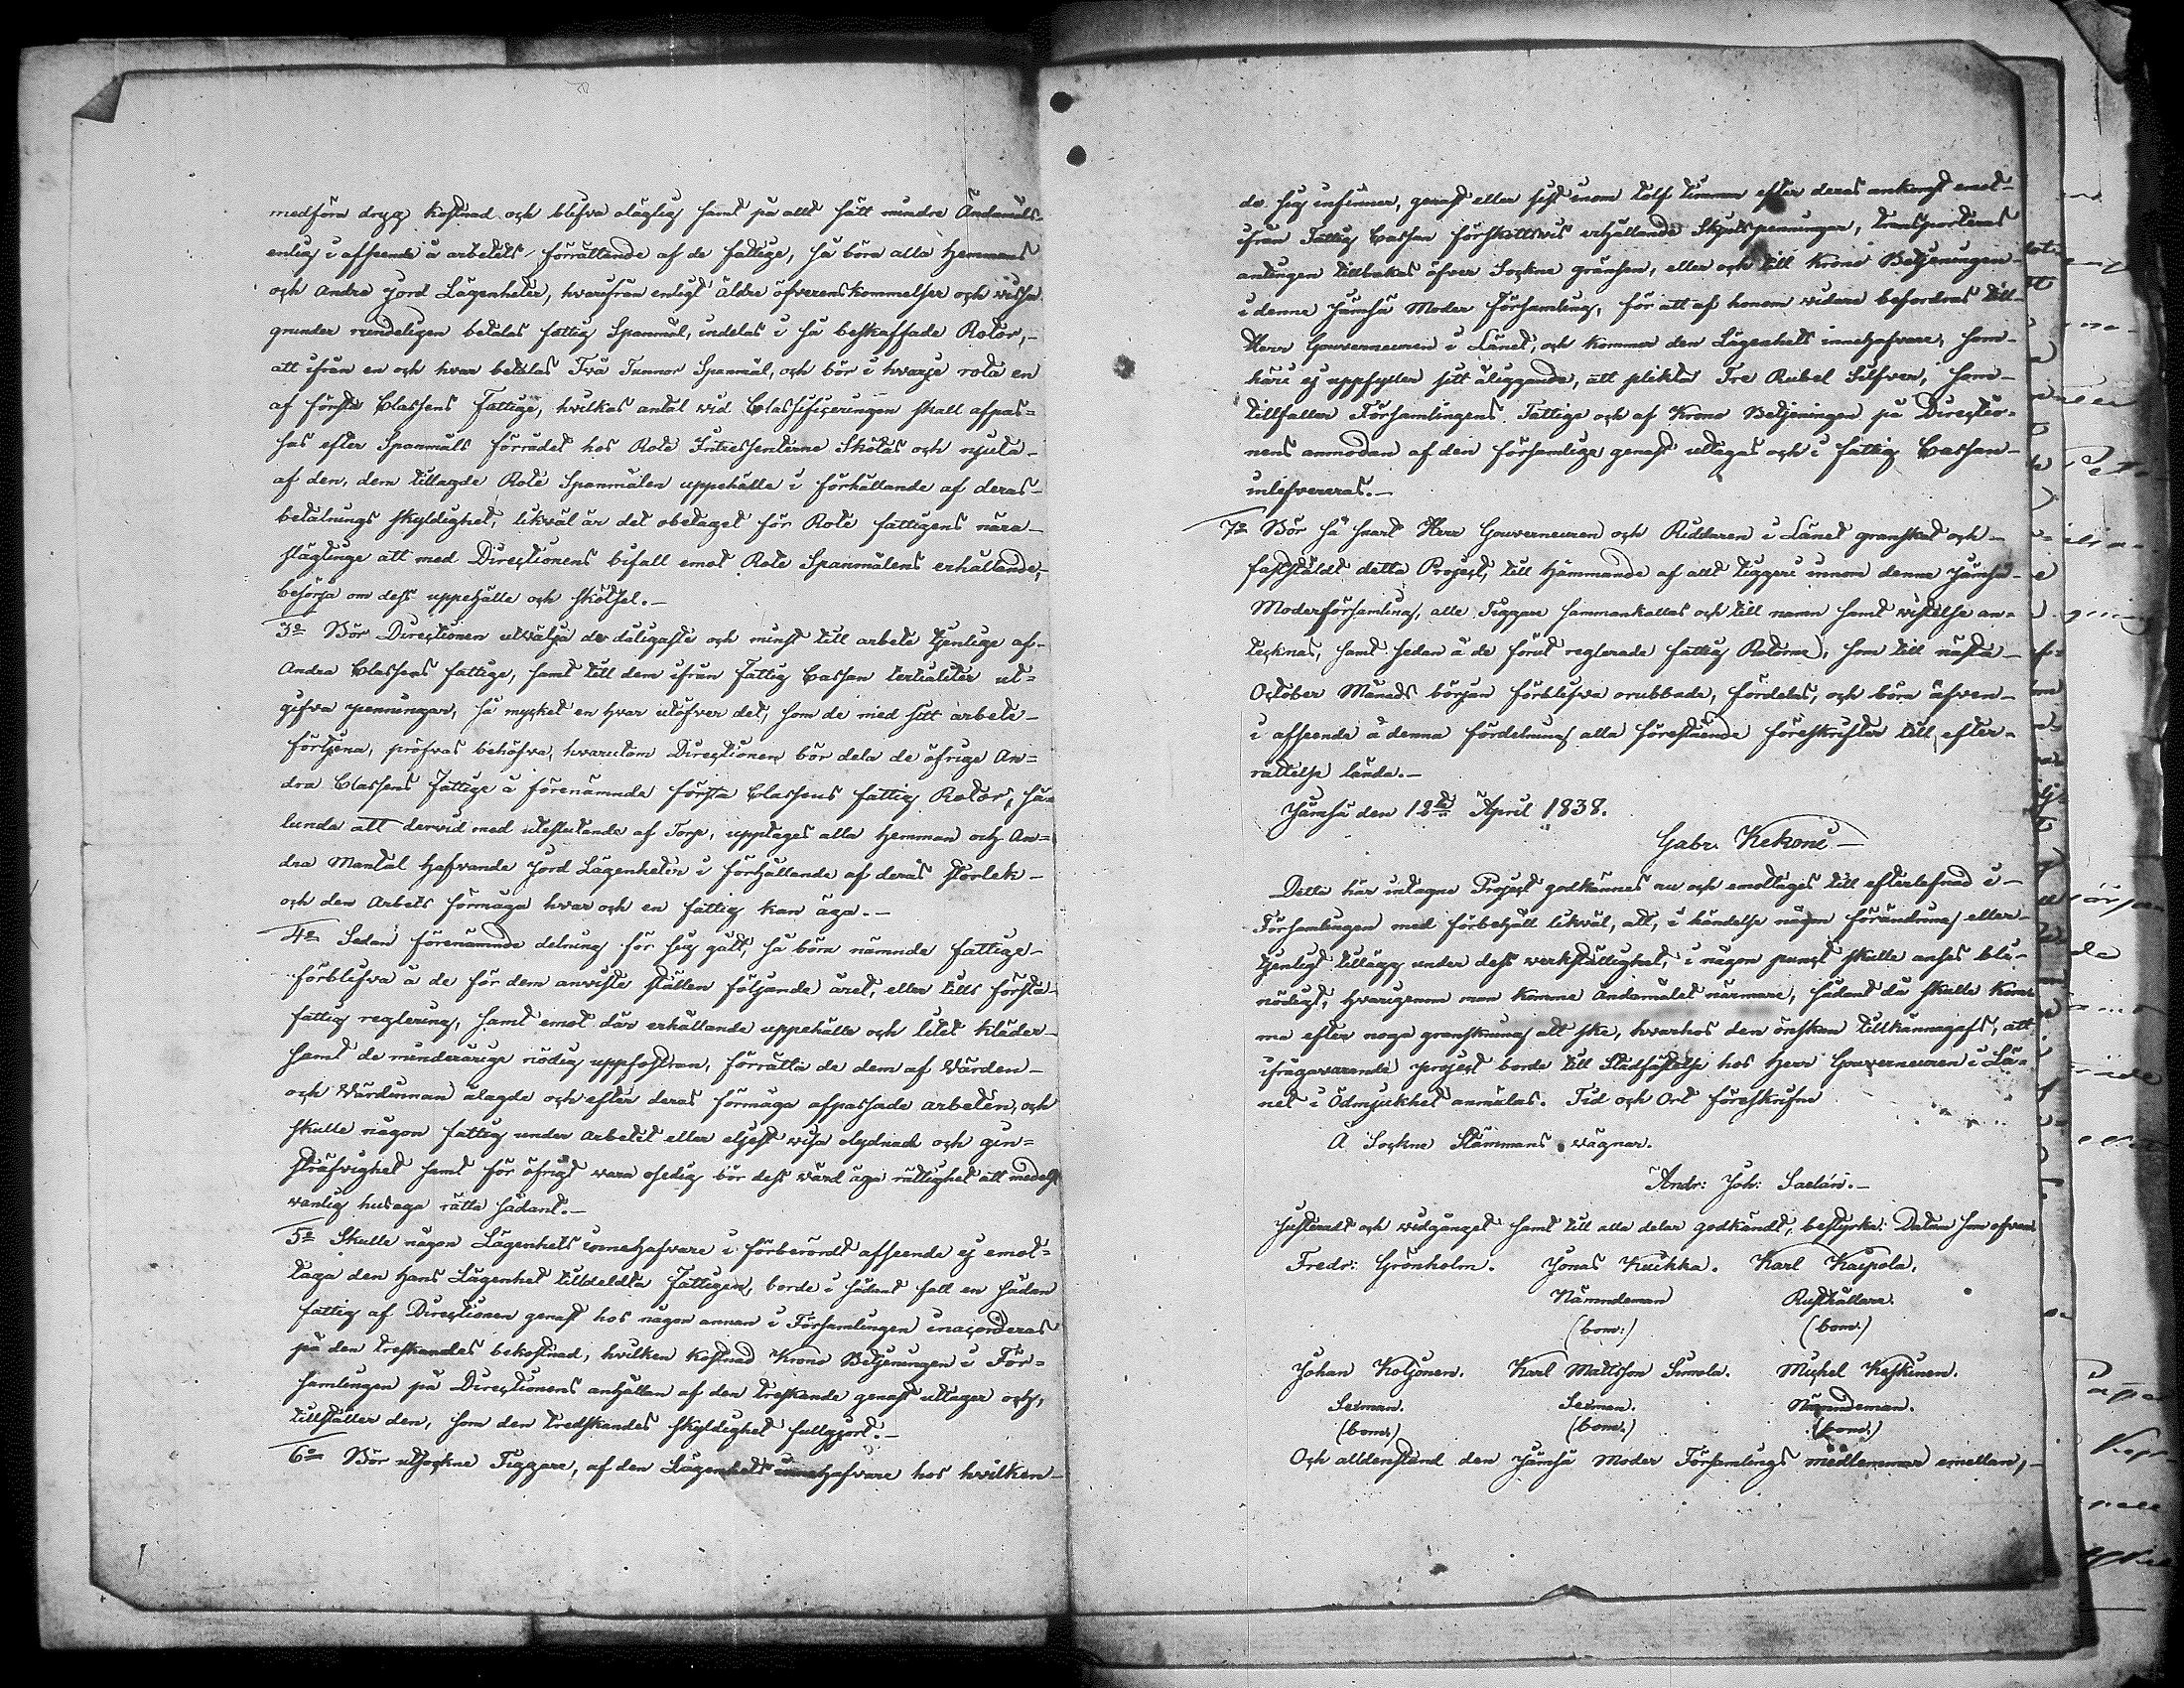 medföra dryg kostnad och blifva oläglig samt på allt sätt mindre Ändamåls-
enlig i afseende å arbetets förrättande af de fattige, så böra alla Hemmans
och Andra Jord Lägenheter, hvarifrån enligt äldre öfverenskommelser och vissa
grunder rundeligen betalas fattig Spanmål, indelas i så beskaffade Rotor,-
att ifrån en och hvar betalas Två Tunnor Spanmål, och bör i hvarje rota en
af första Classens Fattige, hvilkas antal vid Classificeringen skall afpas=
sas efter Spanmåls förrådet hos Rote Intressenterne Skötas och njuta-
af den, dem tillagde Rote Spanmålen uppehälle i förhållande af deras-
betalnings skyldighet, likväl är det obetaget för Rote fattigens nära-
släglinge att med Directionens bifall emot Rote Spanmålens erhållande,-
besörja om dess uppehälle och skötsel.-
3o Bör Directionen utvälja de dåligaste och minst till arbete tjenlige af-
Andra Classens fattige, samt till dem ifrån Fattig Cassan tertialiter ut=
gifva penningar, så mycket en hvar utöfver det, som de med sitt arbete-
förtjena, pröfvas behöfva, hvarutom Directionen bör dela de öfrige An=
dra Classens Fattige å förenämnde första Classens fattig Rotor, så-
lunda att dervid med uteslutande af Torp, upptages alla Hemman och An=
dra Mantal Hafvande Jord Lägenheter i förhållande af deras storlek-
och den Arbets förmåga hvar och en fattig kan äga.-
4o Sedan förenämnde delning för sig gått, så böra nämnde fattige-
förblifva å de för dem anviste ställen följande året, eller tills första-
fattig reglering, samt emot där erhållande uppehälle och litet kläder-
samt de minderårige nödig uppfostran, förrätta de dem af Värden-
och Värdinnan ålagde och efter deras förmåga afpassade arbeten, och
skulle någon fattig under arbetet eller eljest visa olydnad och gen=
sträfvighet samt för öfrigt vara osedig bör dess värd äga rättighet att medelst
vanlig husaga rätta sådant.-
5o Skulle någon Lägenhets innehafvare i förberördt afseende ej emot=
taga den Hans Lägenhet tilldeldta Fattigen, borde i sådant fall en sådan
fattig af Directionen genast hos någon annan i Församlingen inacorderas
på den treskandes bekostnad, hvilken kostnad Krono Betjeningen i För=
samlingen på Directionens anhållan af den treskande genast uttager och,
tillställer den, som den tredskandes skyldighet fullgjort.-
6o Bör utsockne Tiggare, af den Lägenhets innehafvare hos hvilken-
de sig infinner, genast eller sist inom tolf timmar efter deras ankomst emot-
ifrån Fattig Cassan förskottsvis erhållande Skjutspenningar, transporteras
antingen tillbakas öfver Sockne gränsen, eller och till Krono Betjeningen-
i denne Jämsä Moder Församling, för att af honom vidare befordras till-
Herr Gouverneuren i Länet, och kommer den Lägenhets innehafvare, som-
häri ej uppfyller sitt åliggande, att plikta Tre Rubel Silfver, som-
tillfaller Församlingens Fattige och af Krono Betjeningen på Directio-
nens anmodan af den försumlige genast uttagas och i fattig Cassan-
inlefvereras.-
7o Bör så snart Herr Gouverneuren och Riddaren i Länet granskat och-
fastställdt detta Project, till Hämmande af allt tiggeri innom denne Jämsä-
Moderförsamling, alle Tiggare sammankallas och till namn samt vistelse an-
tecknas, samt sedan å de förut reglerade fattig Rotorne, som till nästa-
October Månads början förblifva orubbade, fördelas, och böra äfven-
i afseende å denna fördelning alla förestående föreskrifter till efter-
rättelse lända.-
Jämsä den 12te April 1838.
Gabr. Kekoni-
Detta här intagne Project godkännes nu och emottages till efterlefnad i-
Församlingen med förbehåll likväl, att, i händelse någon förändring eller-
tjenligt tillägg under dess verkställighet, i någon punct skulle anses bli-
nödigt, hvarigenom man komme Ändamålet närmare, sådant då skulle kom-
ma efter noga granskning att ske, hvarhos den önskan tillkännagafs, att
ifrågavarande project borde till Stadfästelse hos Herr Gouverneuren i Lä-
net i Ödmjukhet anmälas. Tid och Ort föreskrifne
Å Sockne Stämmans vägnar.
Andr: Joh: Saelan.-
Justeradt och vidgånget samt till alla delar godkändt, bestyrka: Datum som ofvan
Fredr: Grönholm. Jonas Kuckka. Karl Kaipola,
Nämndeman Rusthållare.
(bom:) (bom:)
Johan Koljonen. Karl Mattsson Simola. Michel Keskinen.
Sexman. Sexman. Nämndeman.
(bom:) (bom:) (bom:)
Och alldenstund den Jämsä Moder Församlings medlemmar emellan,-